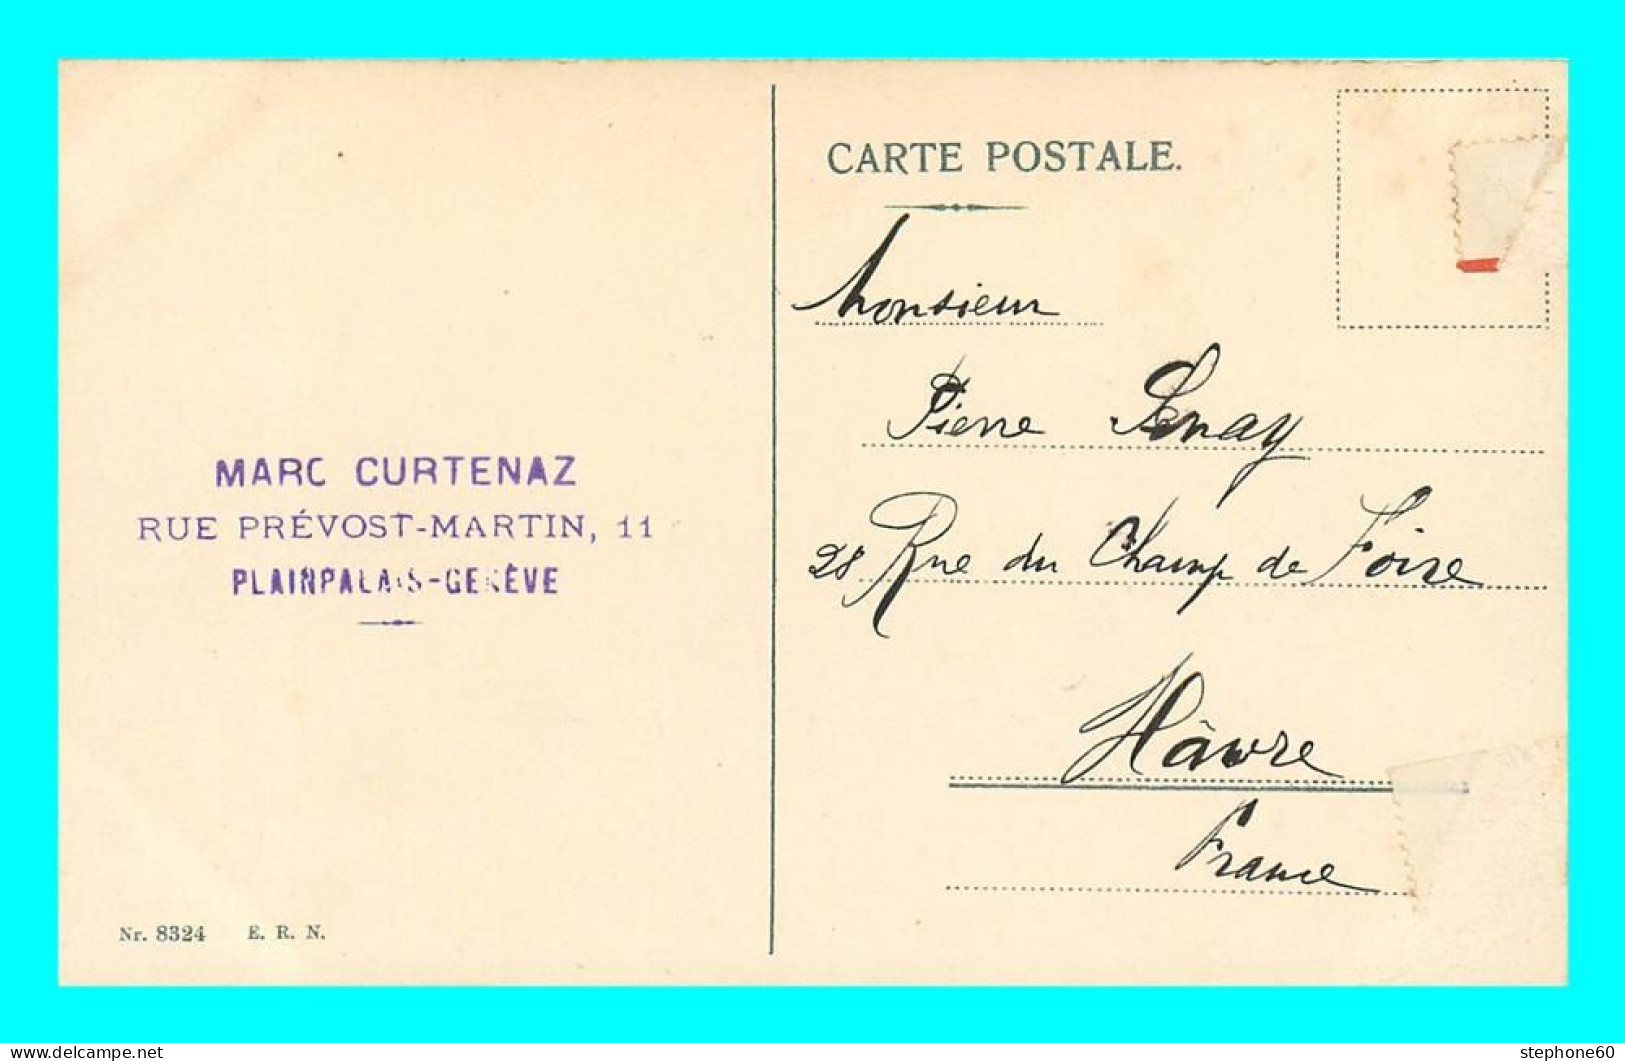 CARTE POSTALE.
Monsieur
Pierre Senay
28 Rue du Champ de Foire
Hâvre
France
MARC CURTENAZ
RUE PRÉVOST-MARTIN, 11
PLAINPALAIS-GENÈVE
Nr. 8324 E. R. N.
stephone60